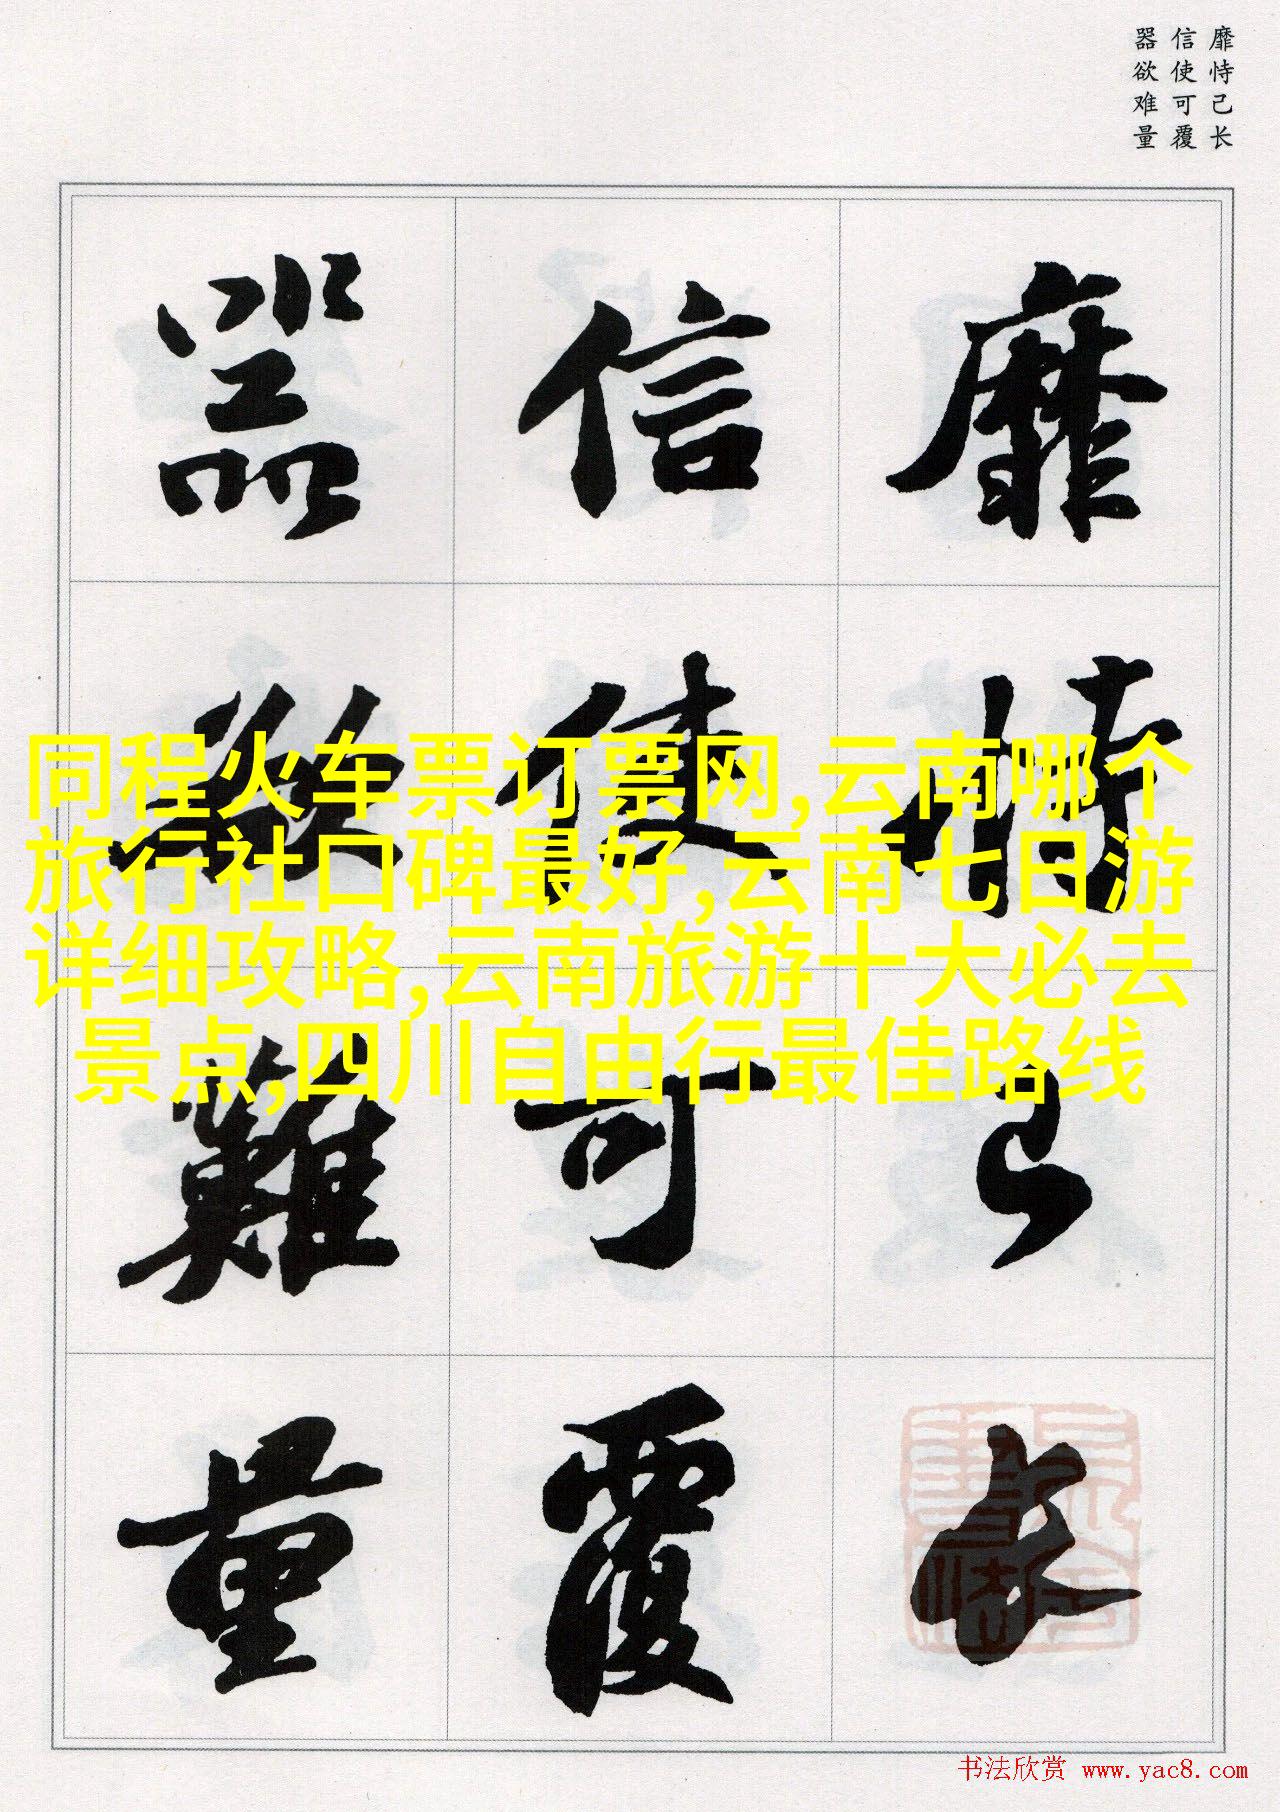 靡恃己长
信使可覆
器欲难量
靡恃己长
信使可覆
器欲難量
同程火车票订票网,云南哪个
旅行社口碑最好,云南七日游
详细攻略,云南旅游十大必去
景点,四川自由行最佳路线
书法欣赏 www.yac8.com